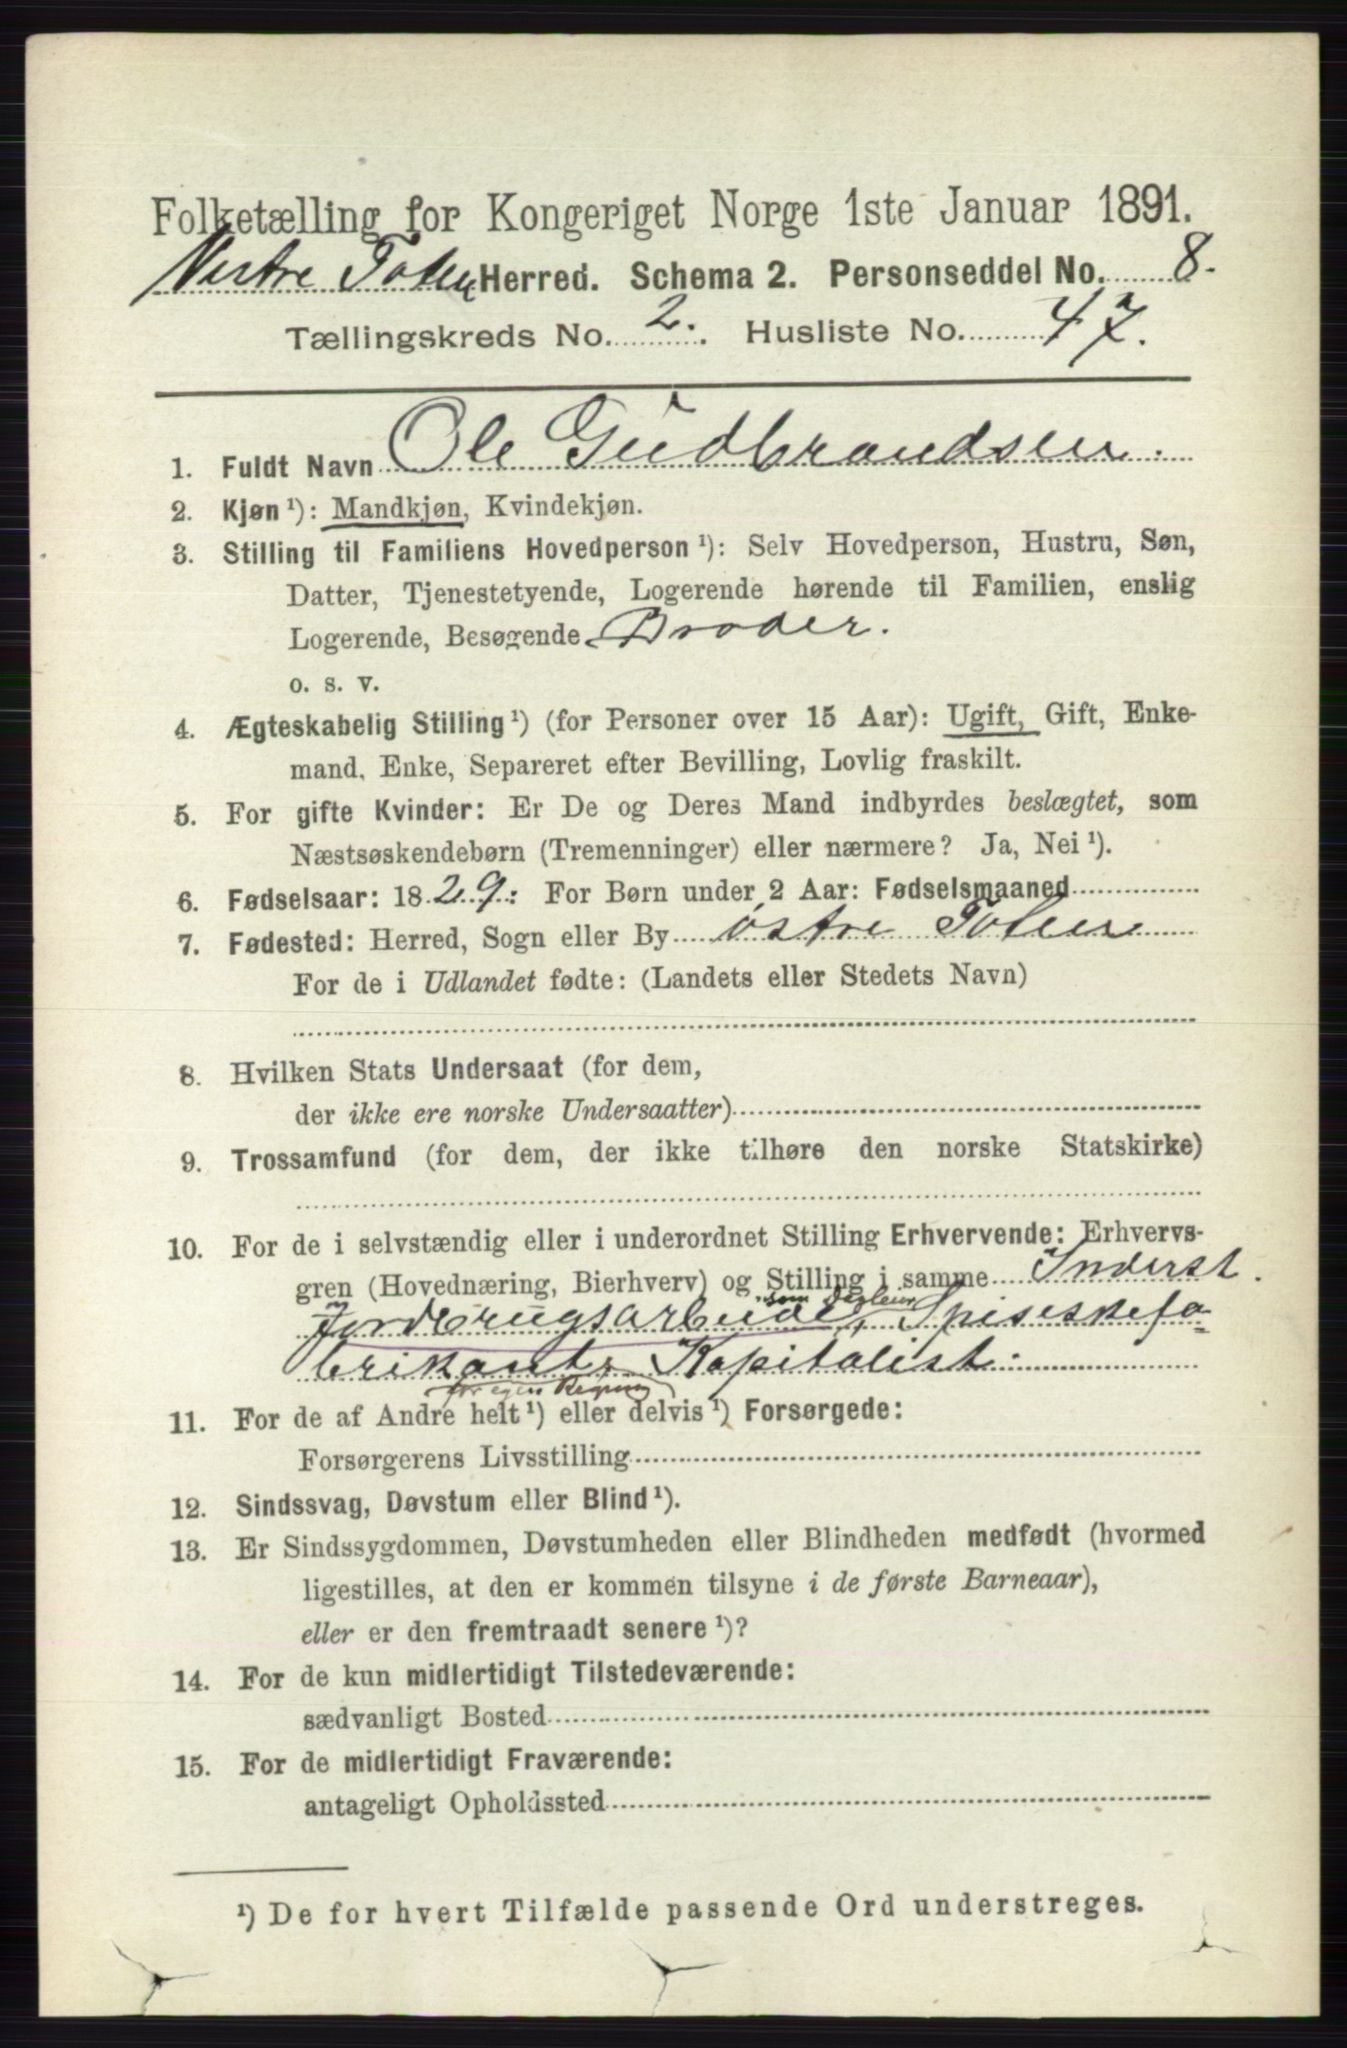 Folketælling for Kongeriget Norge 1ste Januar 1891.
Vestre Toten Herred. Schema 2. Personseddel No. 8.
Tællingskreds No. 2. Husliste No. 47.
1. Fuldt Navn Ole Gudbrandsen.
2. Kjøn ¹): Mandkjøn, Kvindekjøn.
3. Stilling til Familiens Hovedperson ¹): Selv Hovedperson, Hustru, Søn,
Datter, Tjenestetyende, Logerende hørende til Familien, enslig
Logerende, Besøgende Broder.
o. s. v.
4. Ægteskabelig Stilling ¹) (for Personer over 15 Aar): Ugift, Gift, Enke-
mand, Enke, Separeret efter Bevilling, Lovlig fraskilt.
5. For gifte Kvinder: Er De og Deres Mand indbyrdes beslægtet, som
Næstsøskendebørn (Tremenninger) eller nærmere? Ja, Nei ¹).
6. Fødselsaar: 1829: For Børn under 2 Aar: Fødselsmaaned
7. Fødested: Herred, Sogn eller By østre Toten
For de i Udlandet fødte: (Landets eller Stedets Navn)
8. Hvilken Stats Undersaat (for dem,
der ikke ere norske Undersaatter)
9. Trossamfund (for dem, der ikke tilhøre den norske Statskirke)
10. For de i selvstændig eller i underordnet Stilling Erhvervende: Erhvervs-
gren (Hovednæring, Bierhverv) og Stilling i samme Inderst.
som
Jordbrugsarbeide, Spiseskefa-
brikant, Kapitalist.
for egen Regning
11. For de af Andre helt ¹) eller delvis ¹) Forsørgede:
Forsørgerens Livsstilling
12. Sindssvag, Døvstum eller Blind ¹).
13. Er Sindssygdommen, Døvstumheden eller Blindheden medfødt (hvormed
ligestilles, at den er kommen tilsyne i de første Barneaar),
eller er den fremtraadt senere ¹)?
14. For de kun midlertidigt Tilstedeværende:
sædvanligt Bosted
15. For de midlertidigt Fraværende:
antageligt Opholdssted
¹) De for hvert Tilfælde passende Ord understreges.